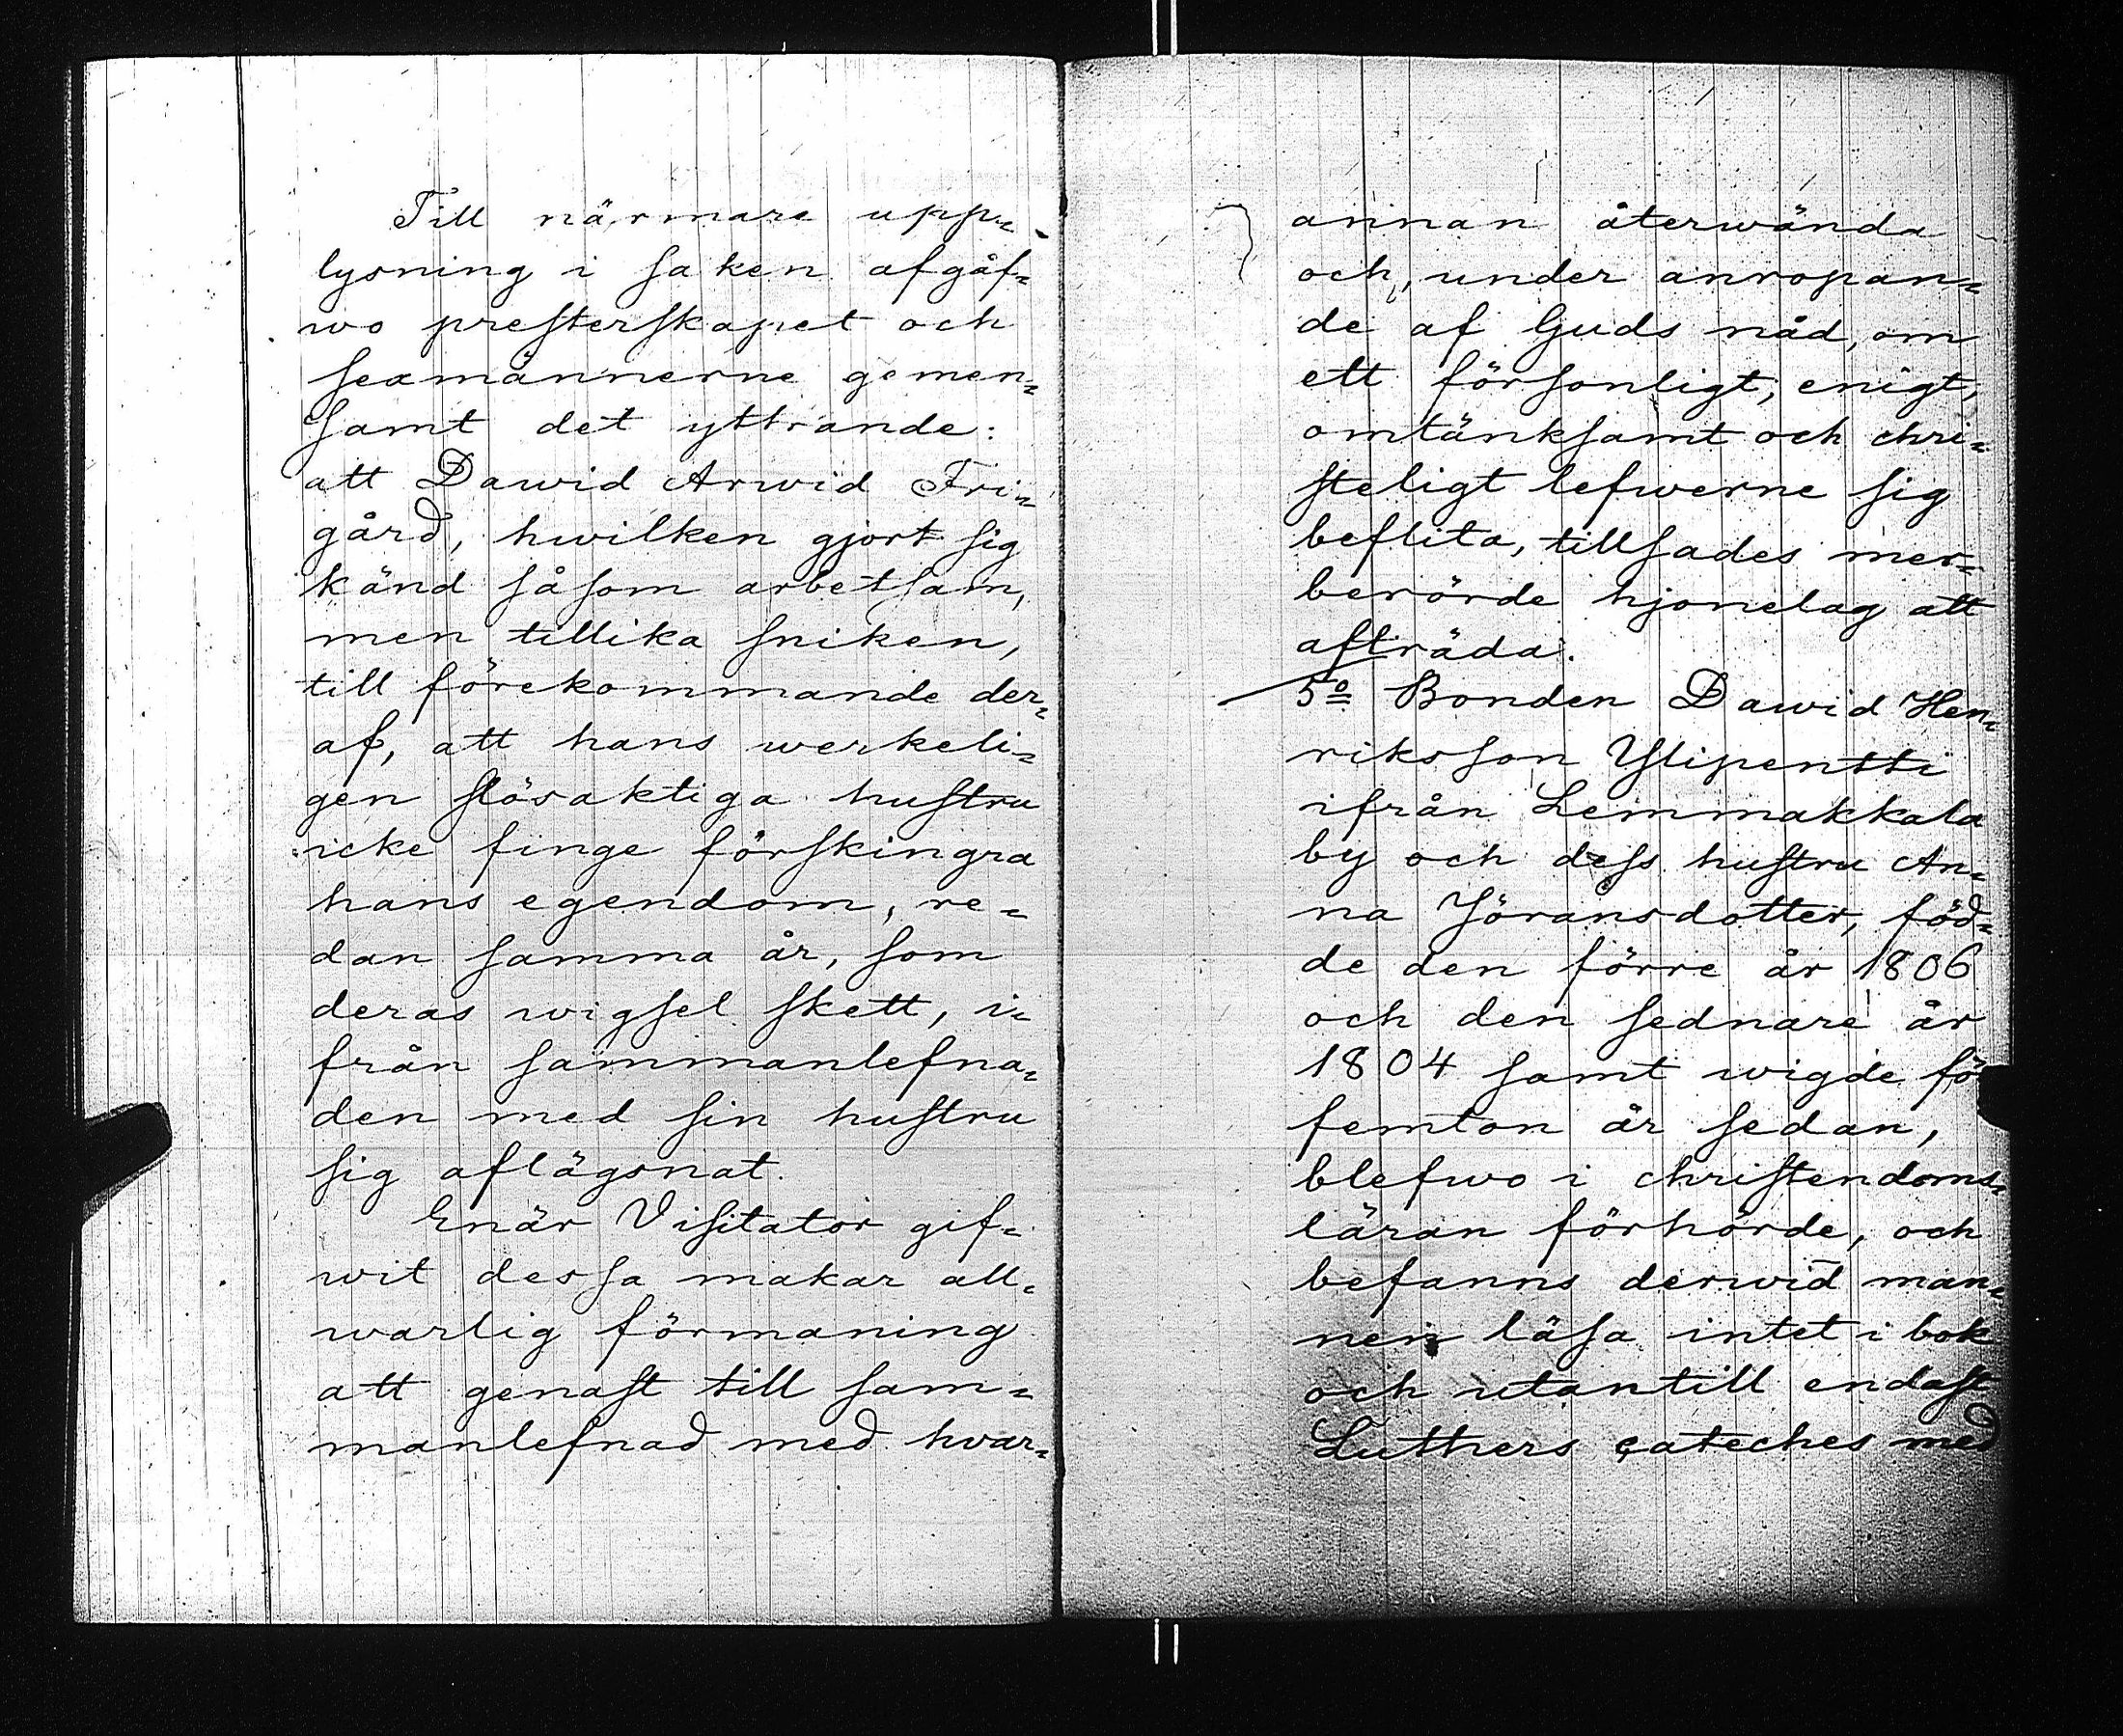 Till närmare upp-
lysning i saken afgåf-
wo presterskapet och
sexmännerne gemen-
samt det yttrande:
att Dawid Arwid Fri-
gård, hwilken gjort sig
känd såsom arbetsam,
men tillika sniken,
till förekommande der-
af, att hans werkeli-
gen slösaktiga hustru
icke finge förskingra
hans egendom, re-
dan samma år, som
deras wigsel skett, i-
från sammanlefna-
den med sin hustru
sig aflägsnat.
Enär Visitator gif-
wit dessa makar all-
warlig förmaning
att genast till sam-
manlefnad med hvar-
annan återwända
och, under anropan-
de af Guds nåd, om
ett försonligt, enigt,
omtänksamt och chri-
steligt lefwerne sig
beflita, tillsades mer-
berörde hjonelag att
afträda.
5º Bonden Dawid Hen-
riksson Ylipentti
ifrån Lemmakkala
by och dess hustru An-
na Jöransdotter, föd-
de den förre år 1806
och den sednare år
1804 samt wigde fö
femton år sedan,
blefwo i christendoms-
läran förhörde, och
befanns derwid man-
nen läsa intet i bok
och utantill endast
Luthers cateches med